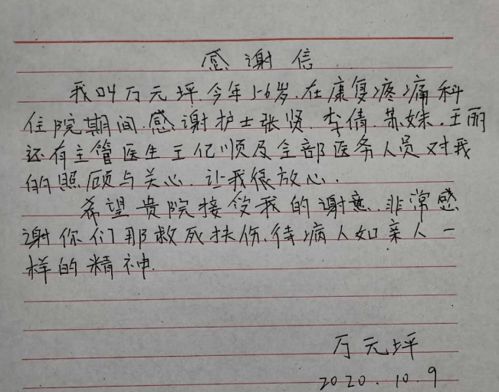 感谢信
我叫万元坪今年56岁.在康复疼痛科
住院期间.感谢护士张贤.李倩.苏姝.王丽
还有主管医生王亿顺及全部医务人员对我
的照顾与关心.让我很放心.
希望贵院接受我的谢意.非常感
谢你们那救死扶伤.待病人如亲人一
样的精神.
万元坪
2020.10.9